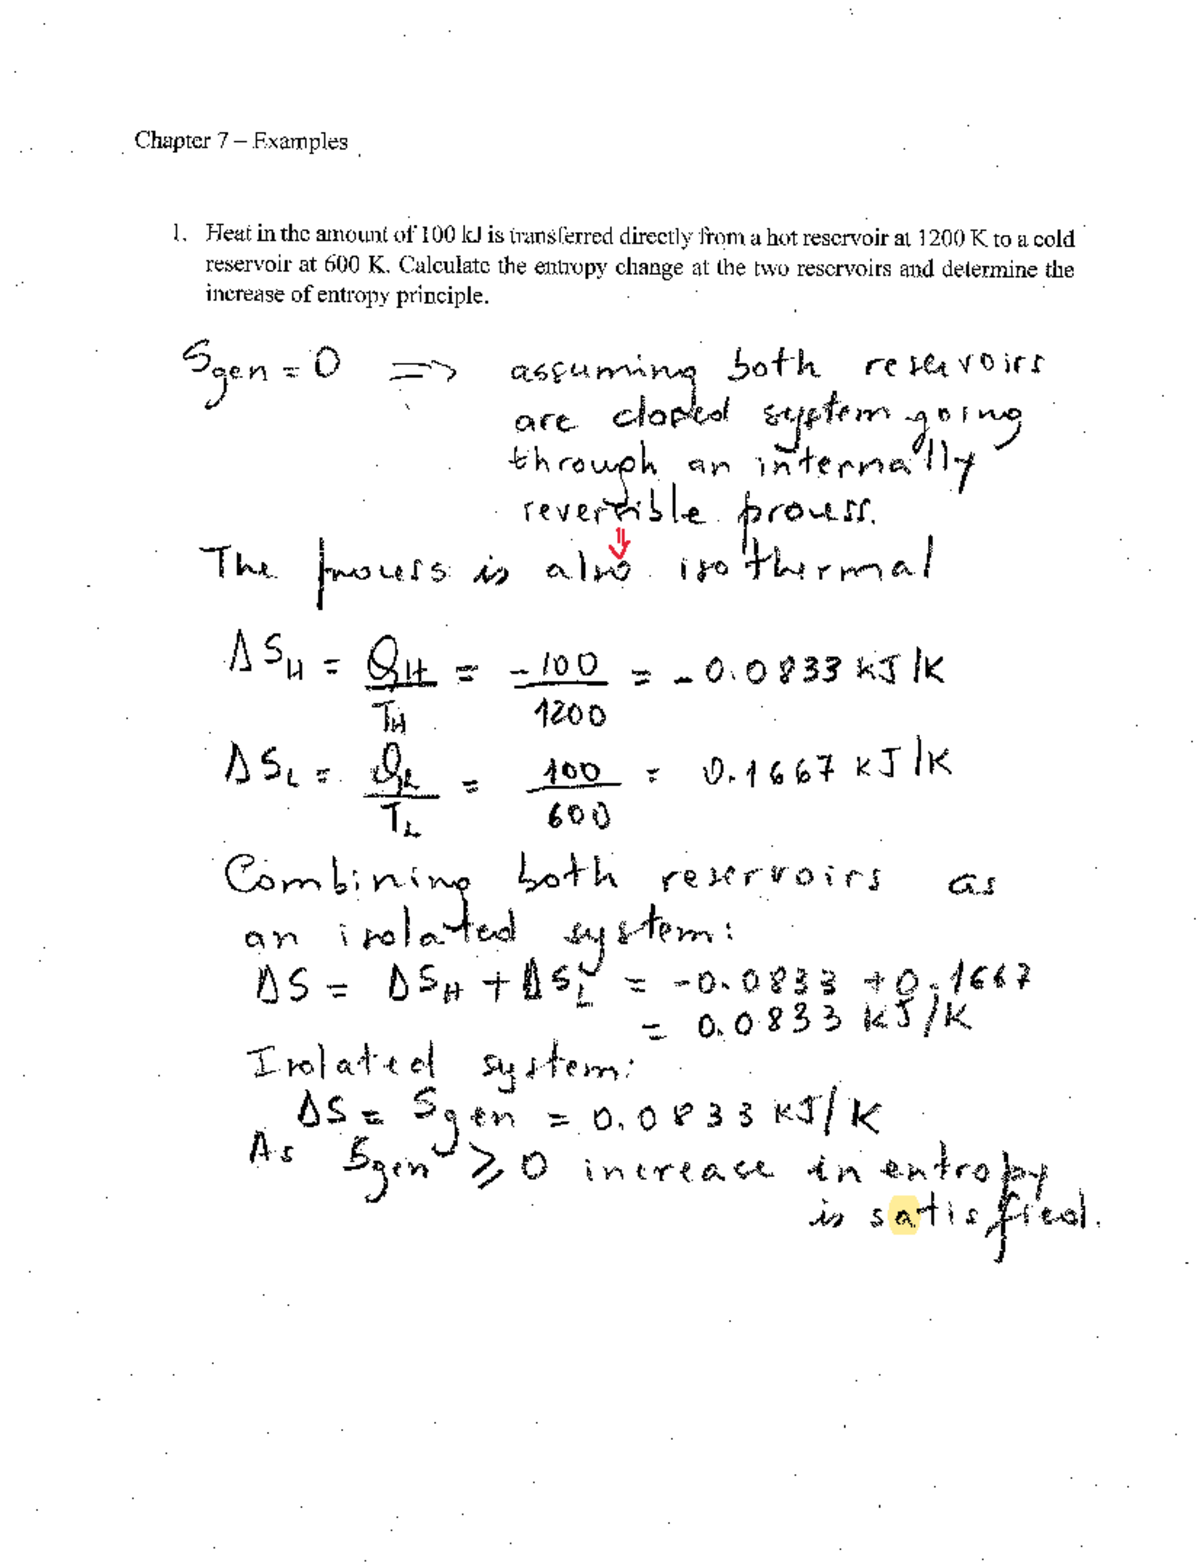 Chapter 7 – Examples
1. Heat in the amount of 100 kJ is transferred directly from a hot reservoir at 1200 K to a cold
reservoir at 600 K. Calculate the entropy change at the two reservoirs and determine the
increase of entropy principle.
Sgen = 0 => assuming both reservoirs
are closed system going
through an internally
reversible process.
⇓
The process is also isothermal
ΔS_H = Q_H / T_H = -100 / 1200 = -0.0833 kJ/K
ΔS_L = Q_L / T_L = 100 / 600 = 0.1667 kJ/K
Combining both reservoirs as
an isolated system:
ΔS = ΔS_H + ΔS_L = -0.0833 + 0.1667
= 0.0833 kJ/K
Isolated system:
ΔS = Sgen = 0.0833 kJ/K
As Sgen ≥ 0 increase in entropy
is satisfied.